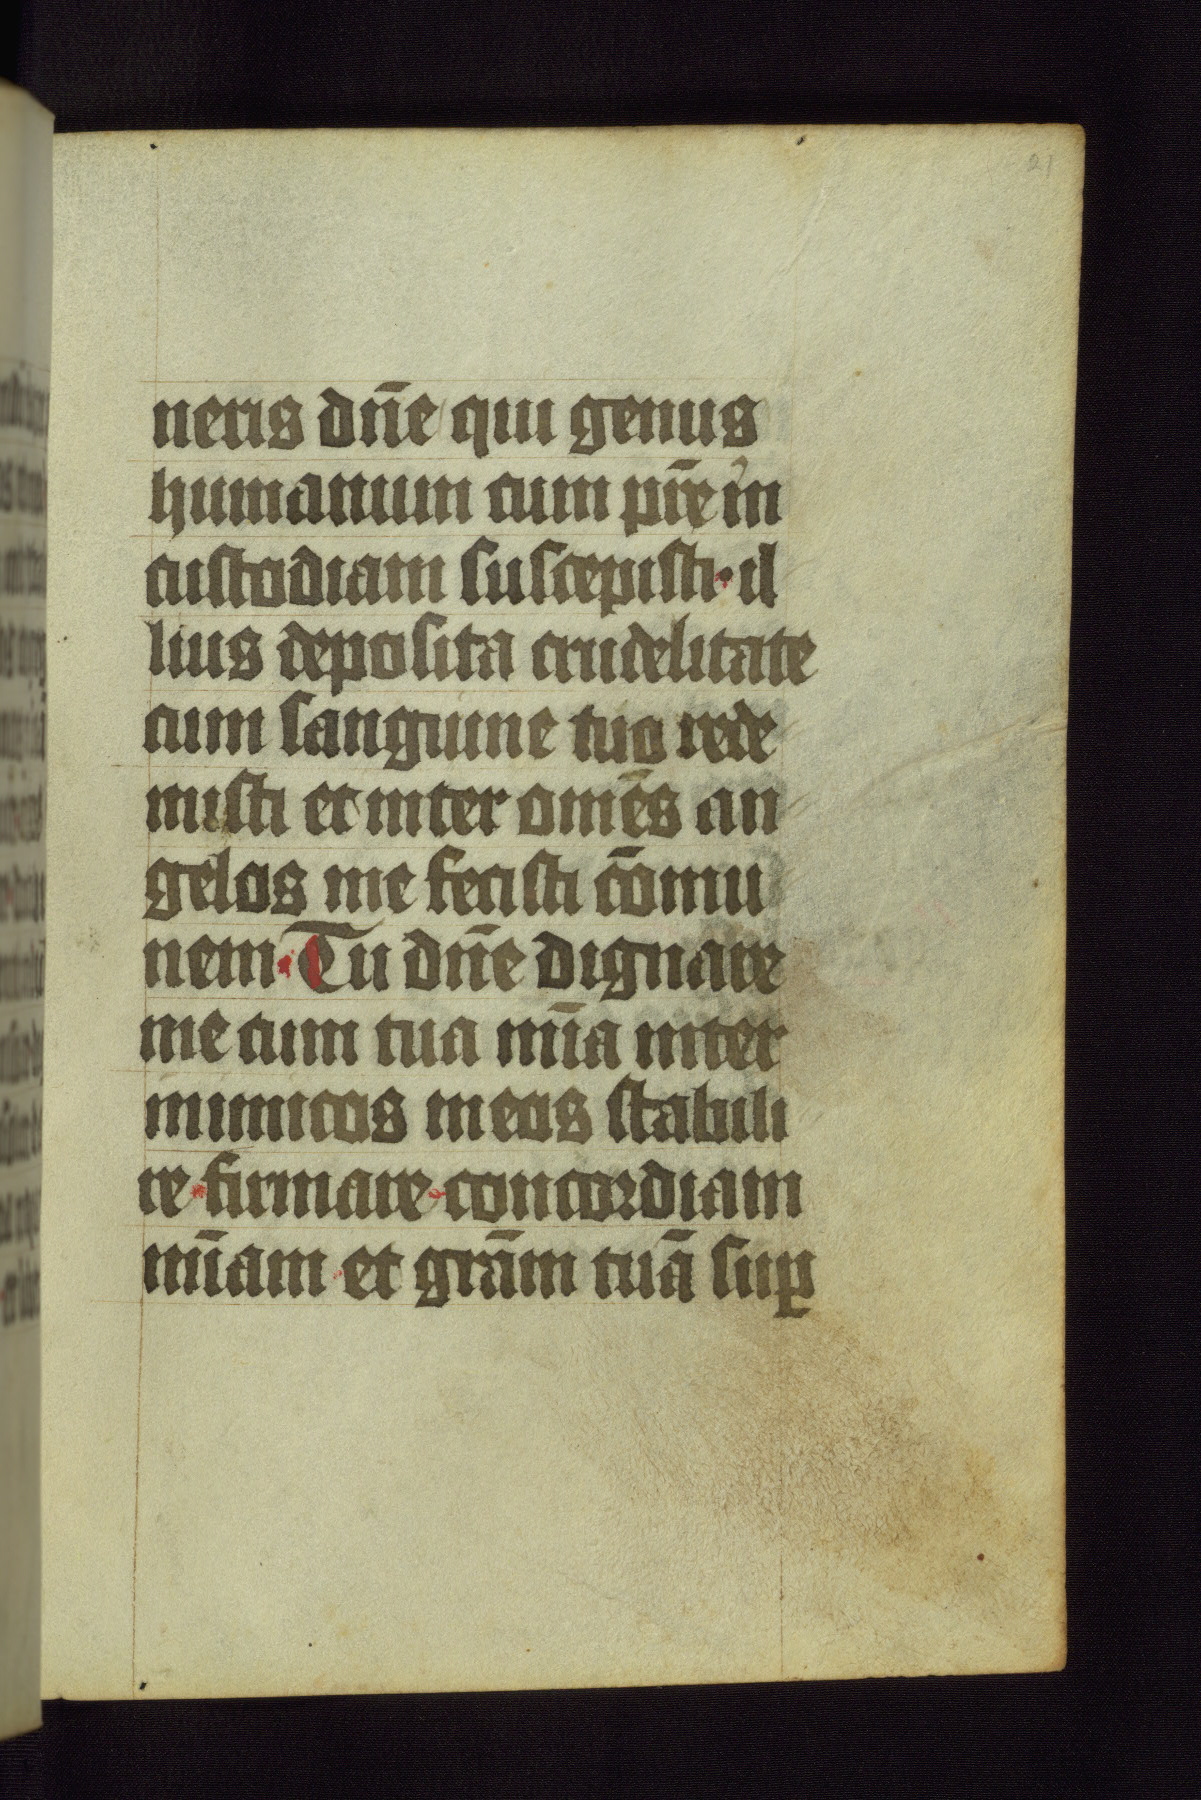 21
neris dn̄e qui genus
humanum cum pr̄e in
custodiam suscepisti · il
lius deposita crudelitate
cum sanguine tuo rede
misti et inter omēs an
gelos me fecisti cōmu
nem · Tu dn̄e dignare
me cum tua mīa inter
inimicos meos stabili
re · firmare · concordiam
mīam · et grām tuā sup